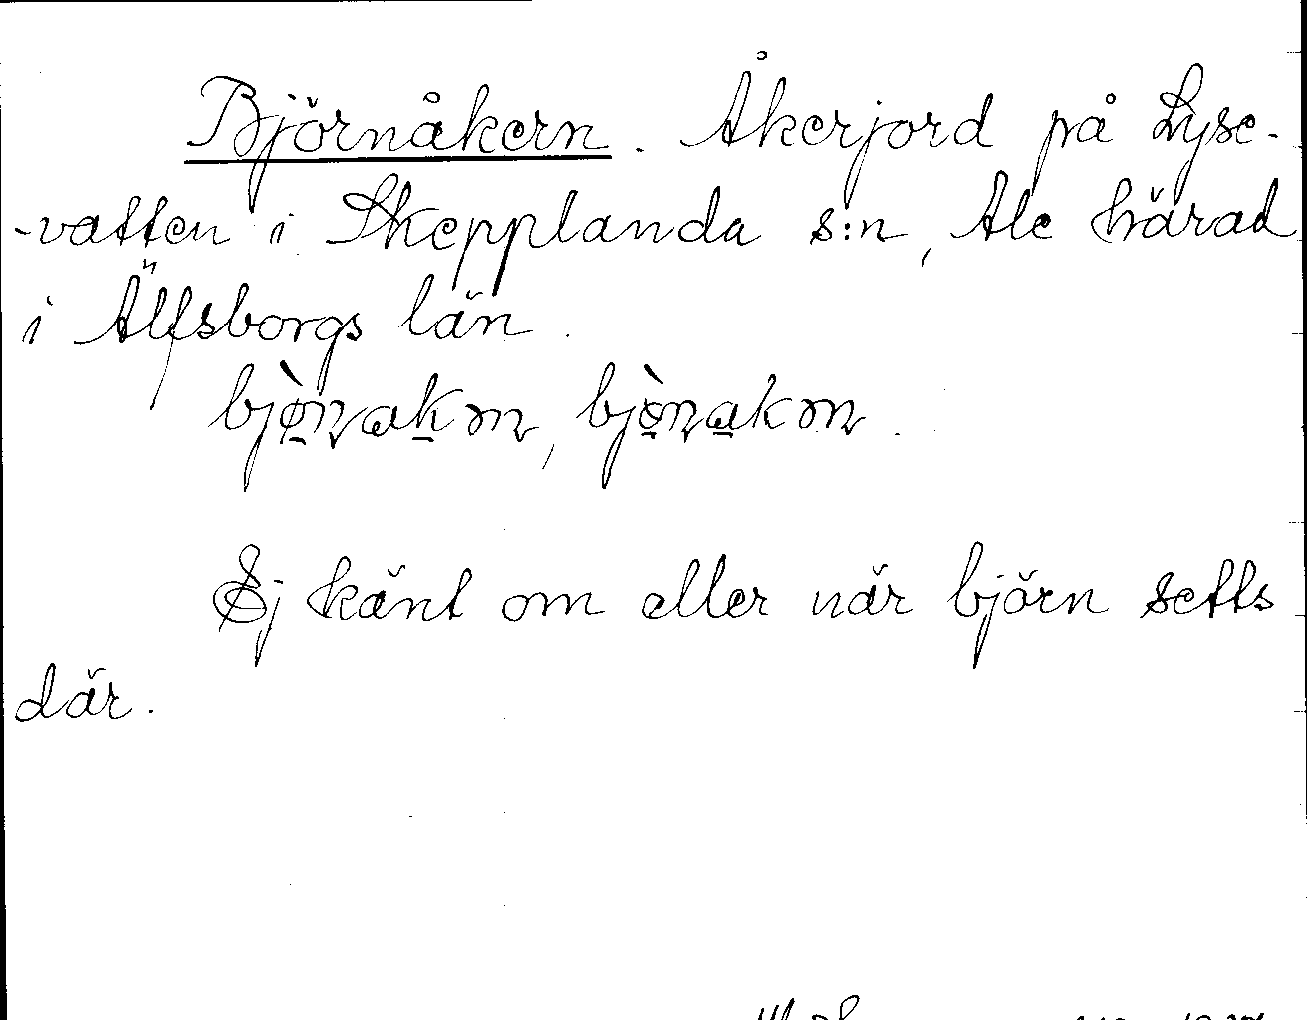 Björnåkern. Åkerjord på Lyse-
-vatten i Skepplanda s:n, Ale härad
i Älfsborgs län.
bjö̀ṇakɷṇ, bjö̀ṇakɷṇ.
Ej känt om eller när björn setts
där.